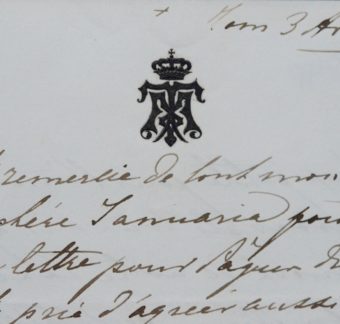 Rom 3 Av
remercie de tout mon
chère Januaria pour
lettre pour Pâques
prie d'agréer aussi